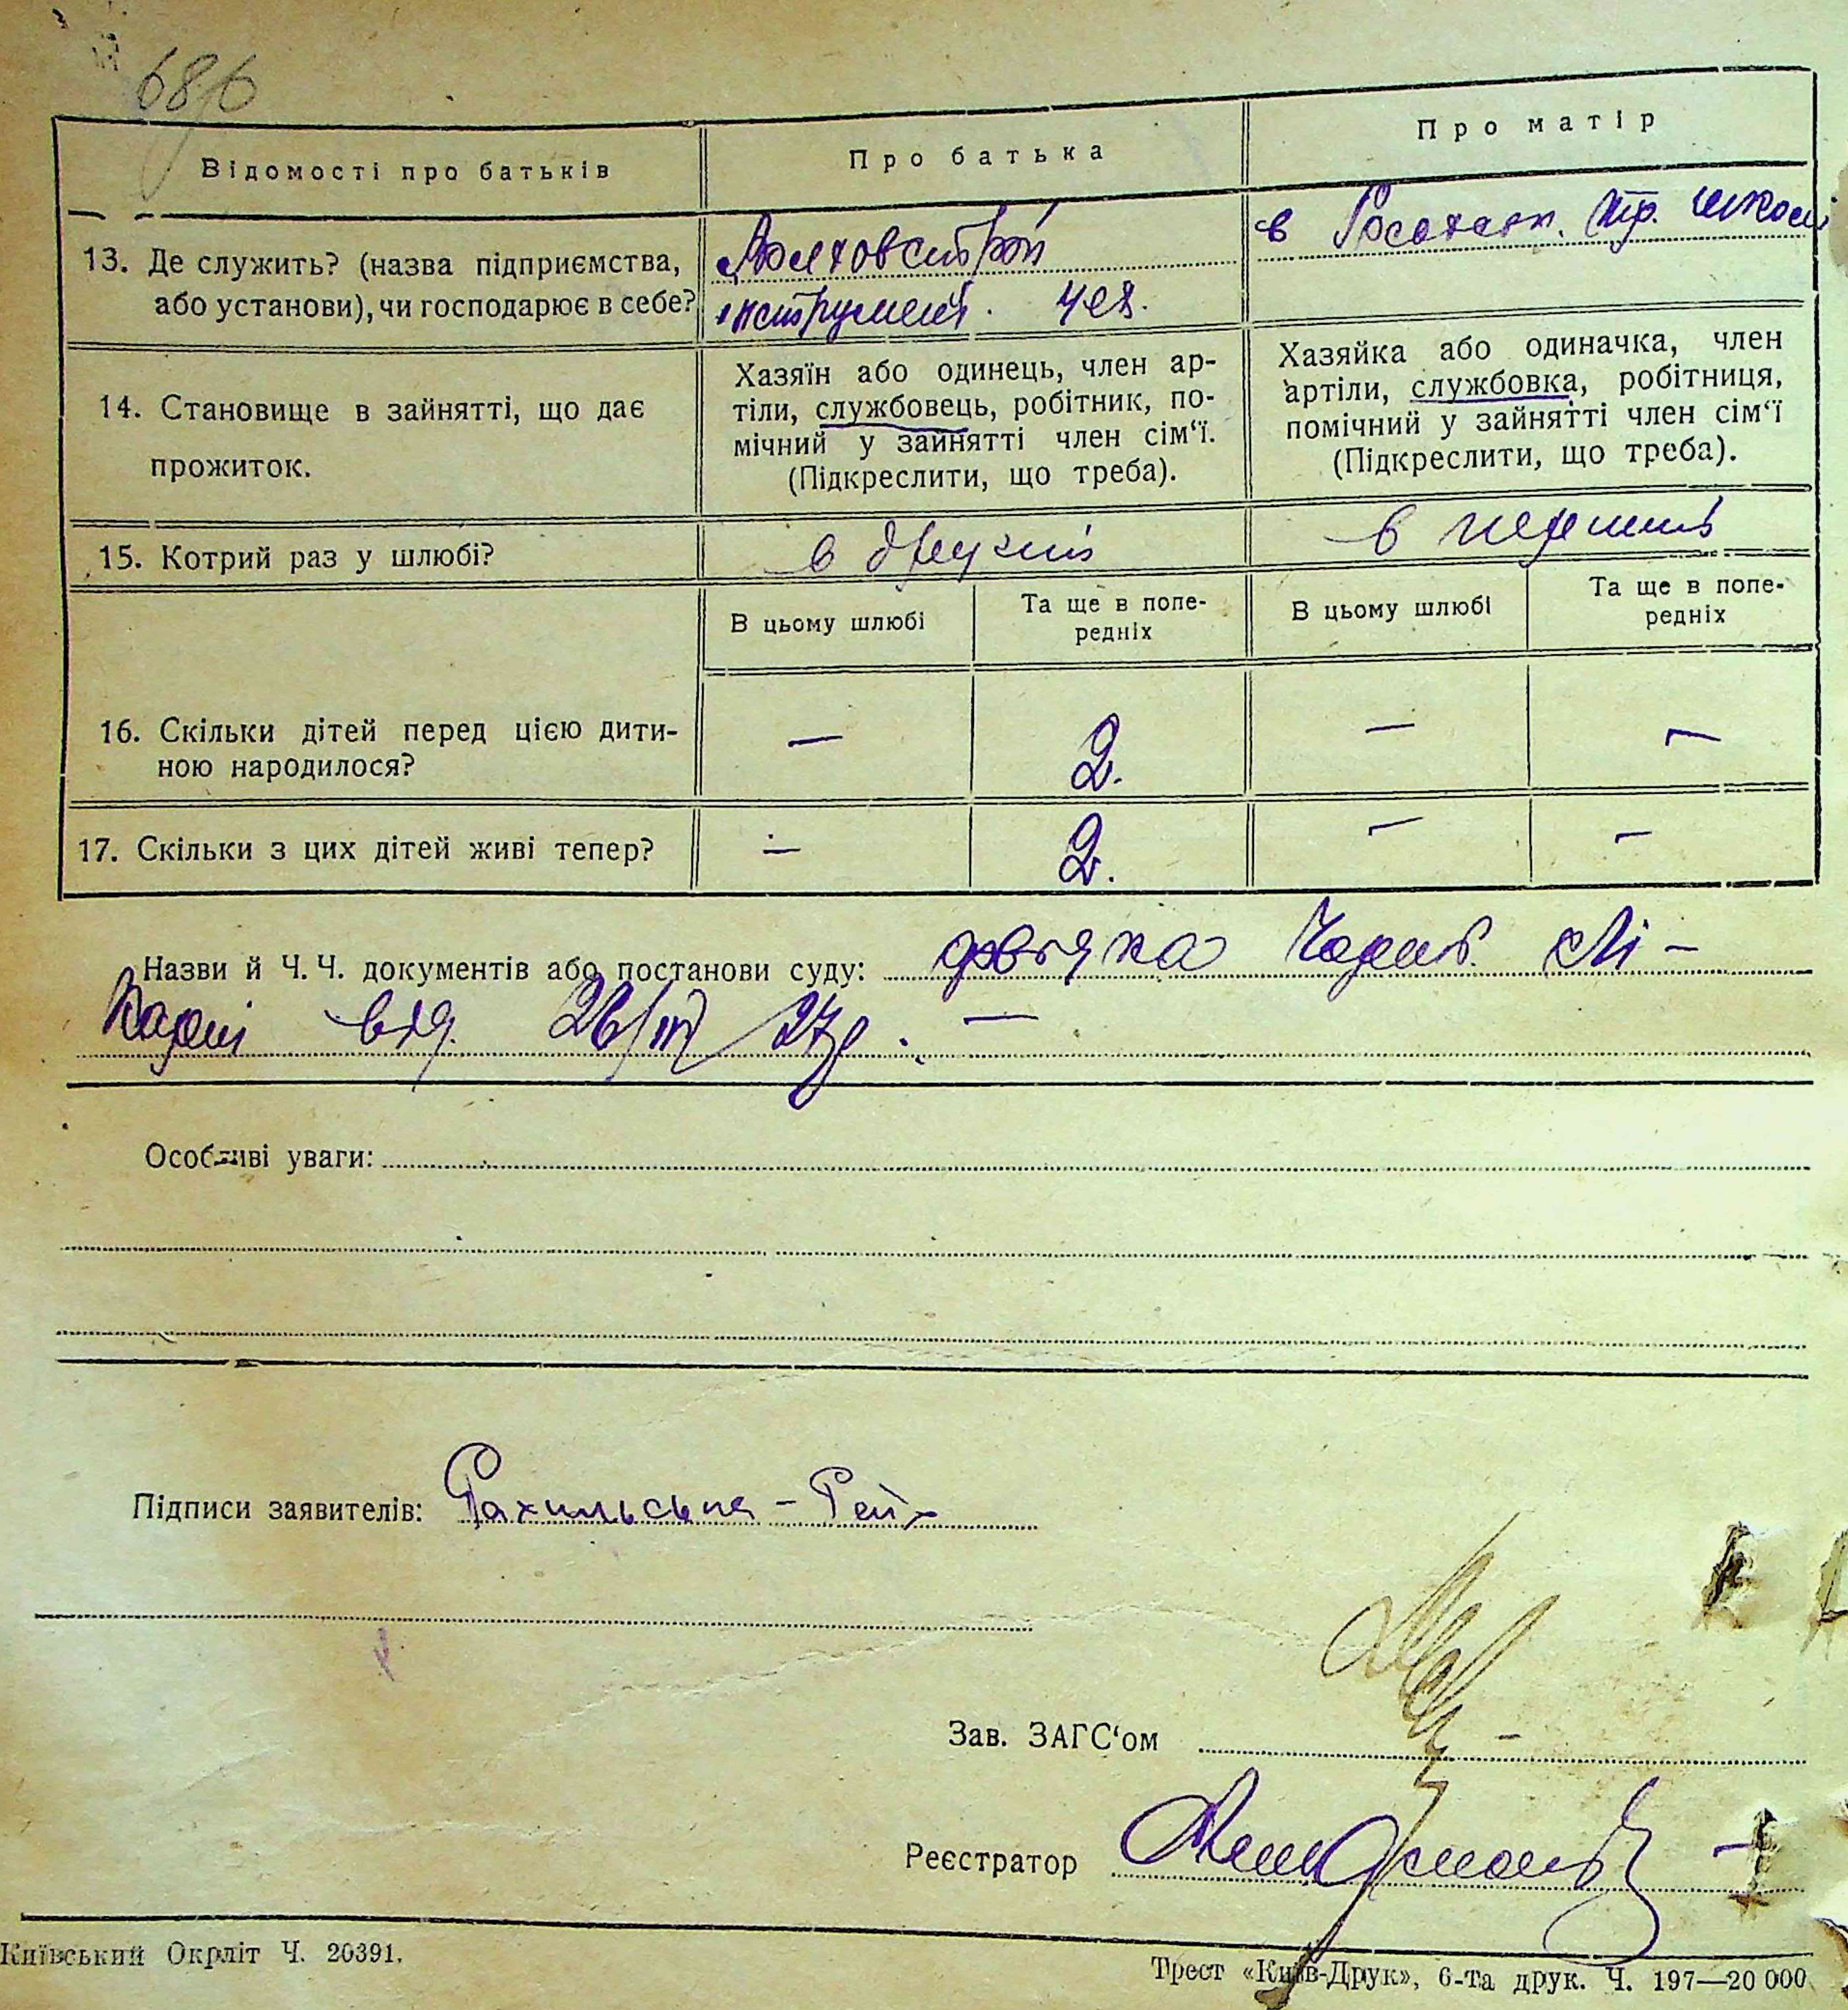 686
Відомості про батьків
Про батька
Про матір
13. Де служить? (назва підприємства,
або установи), чи господарює в себе?
инструмент. чех.
в тр. школі
14. Становище в зайнятті, що дає
прожиток.
Хазяїн або одинець, член ар-
тіли, службовець, робітник, по-
мічний у зайнятті член сім‘ї.
(Підкреслити, що треба).
Хазяйка або одиначка, член
артіли, службовка, робітниця,
помічний у зайнятті член сім‘ї
(Підкреслити, що треба).
15. Котрий раз у шлюбі?
в другий
в перший
В цьому шлюбі
Та ще в попе-
редніх
В цьому шлюбі
Та ще в попе-
редніх
16. Скільки дітей перед цією дити-
ною народилося?
— 2. — —
17. Скільки з цих дітей живі тепер?
— 2. — —
Назви й Ч. Ч. документів або постанови суду: довідка Лі-
карні від. 26/III 27р. —
Особливі уваги:
Підписи заявителів: Рахильська - Рейх
Зав. ЗАГС‘ом
Реєстратор
Київський Окрліт Ч. 20391.
Трест «Київ-Друк», 6-та друк. Ч. 197—20 000